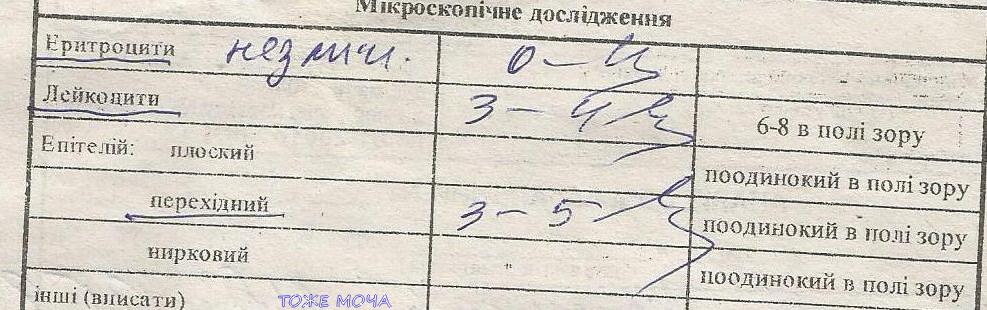 Мікроскопічне дослідження
Еритроцити незмін. 0-1
Лейкоцити 3-4 6-8 в полі зору
Епітелій: плоский поодинокий в полі зору
перехідний 3-5 поодинокий в полі зору
нирковий " поодинокий в полі зору
інші (вписати) ТОЖЕ МОЧА